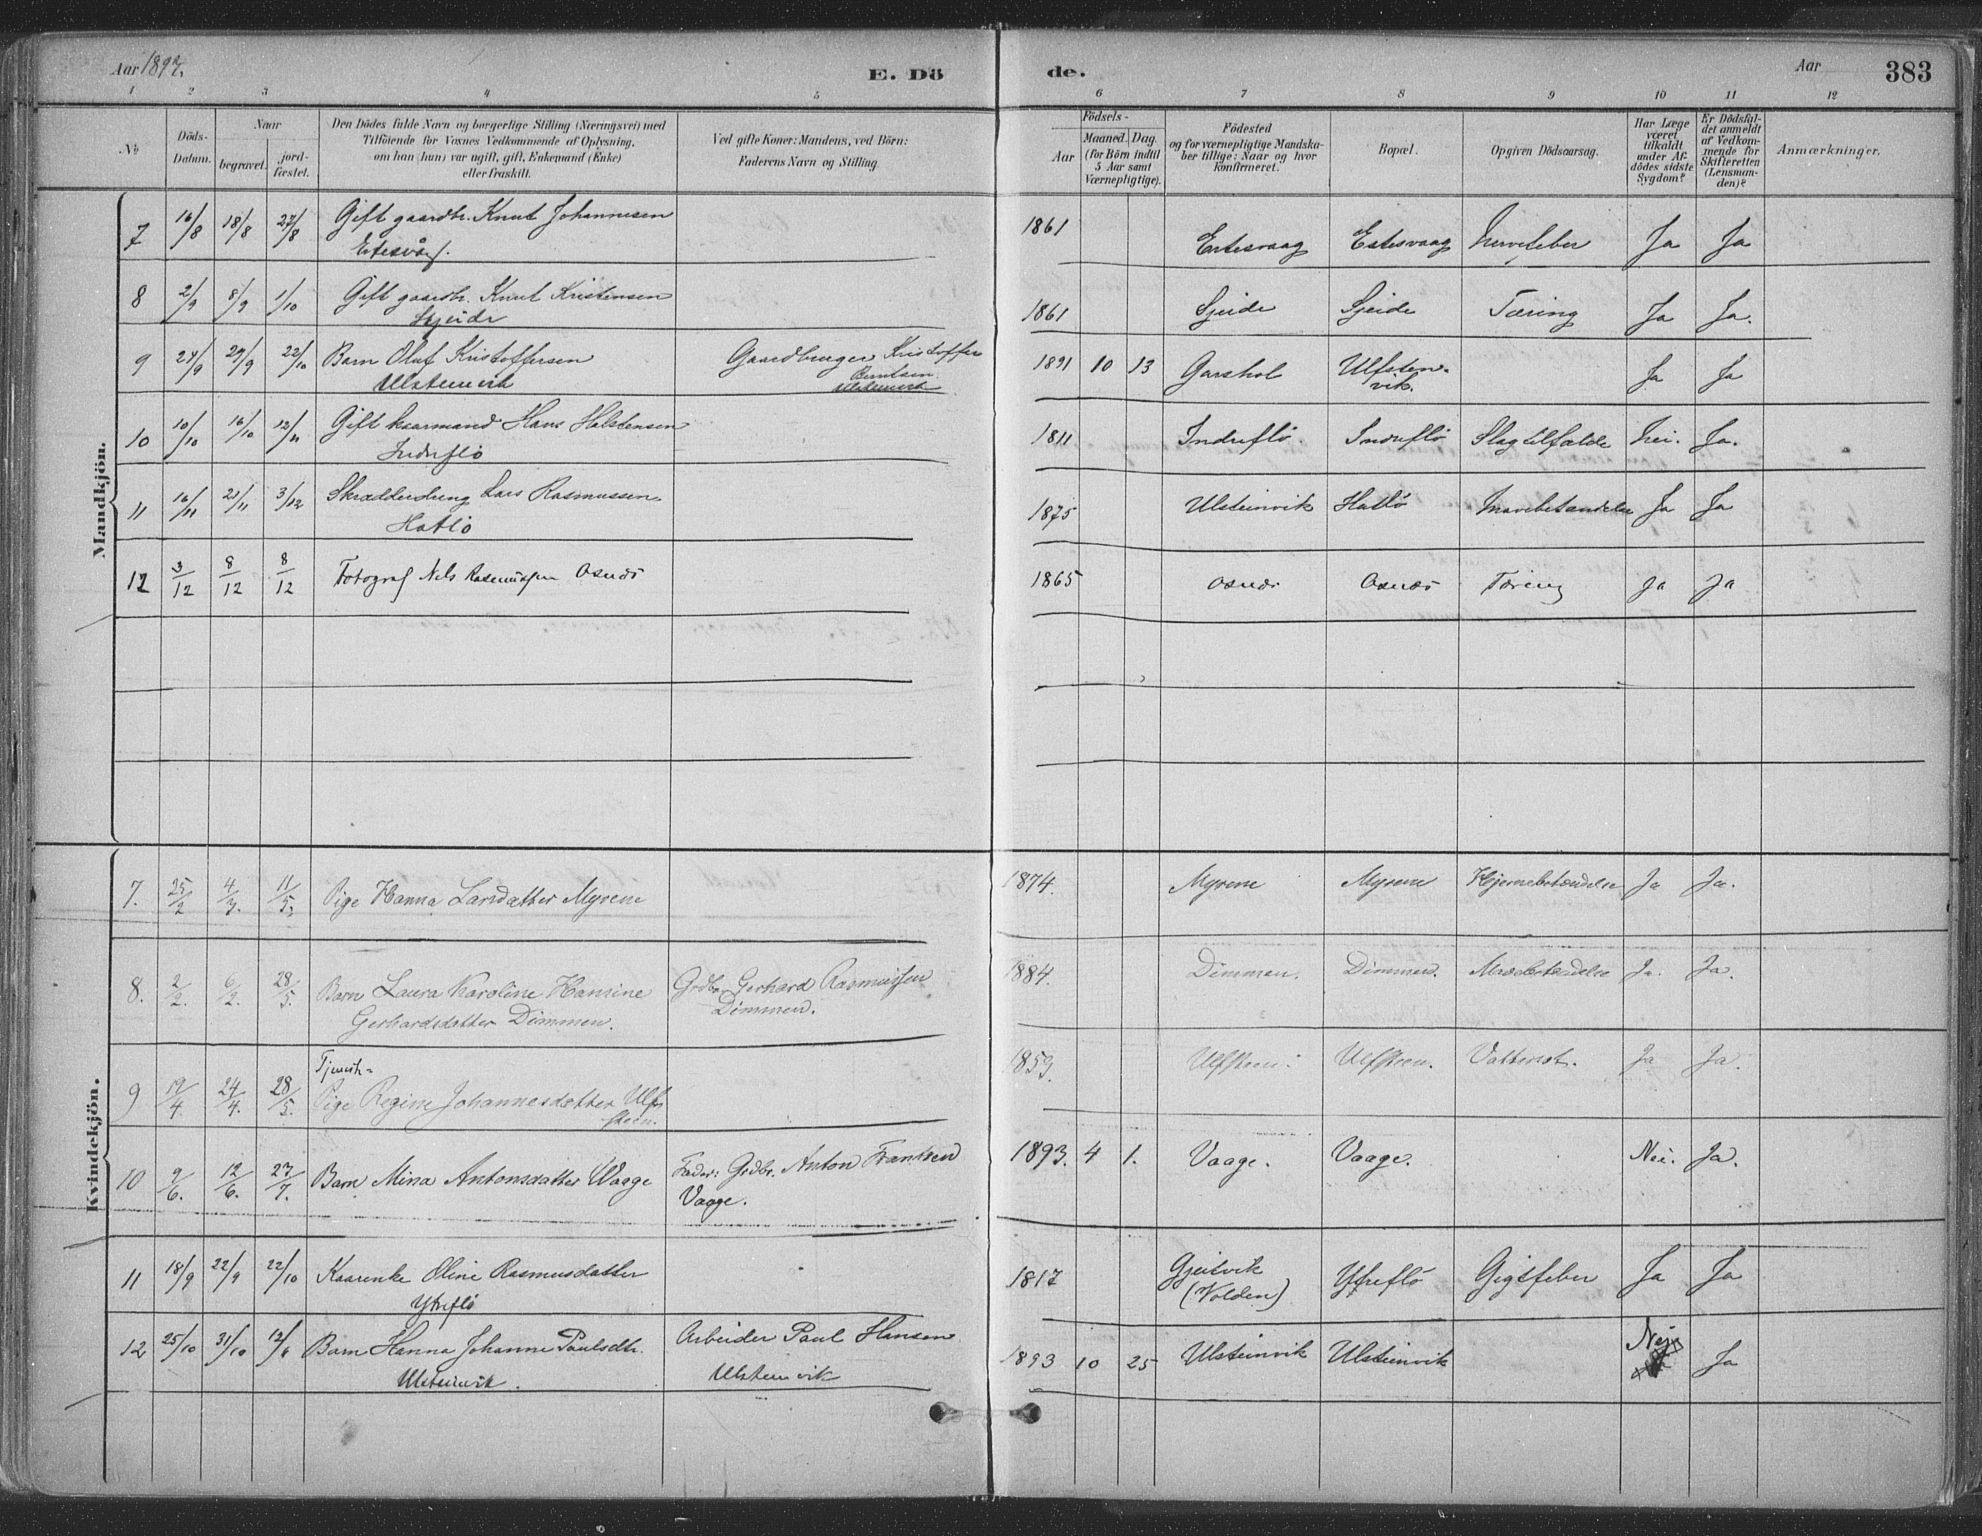 Aar 1897.
E. Dö
de.
Aar
383
1 2 3 4 5 6 7 8 9 10 11 12
No
Döds-
Datum.
Naar
begravet.
jord-
fæstet.
Den Dödes fulde Navn og borgerlige Stilling (Næringsvei) med
Tilföiende for Voxnes Vedkommende af Oplysning,
om han (hun) var ugift, gift, Enkemand (Enke)
eller fraskilt.
Ved gifte Koner: Mandens, ved Börn:
Faderens Navn og Stilling.
Födsels-
Aar
Maaned. Dag.
(for Börn indtil
5 Aar samt
Værnepligtige).
Födested
og for værnepligtige Mandska-
ber tillige: Naar og hvor
konfirmeret.
Bopæl.
Opgiven Dödsaarsag.
Har Læge
været
tilkaldt
under Af-
dödes sidste
Sygdom?
Er Dödsfal-
det anmeldt
af Vedkom-
mende for
Skifteretten
(Lensman-
den)?
Anmærkninger.
Mandkjön.
7 16/8 18/8 27/8 Gift gaardbr. Knut Johannesen 1861 Ertesvaag Ertesvaag Nervefeber Ja Ja
Ertesvåg.
8 2/9 8/9 1/10 Gift gaardbr. Knut Kristensen 1861 Sjeide Sjeide Tæring Ja Ja.
Skjeide
9 24/9 29/9 22/10 Barn Oluf Kristoffersen Gaardbruger Kristoffer 1891 10 13 Garshol Ulfsten- Ja Ja
Ulstenvik Berntsen vik.
Ulstenvik
10 10/10 16/10 12/11 Gift kaarmand Hans Holstensen 1811 Indreflö Indreflö Slagtilfælde Nei. Ja.
Indreflö
11 16/11 21/11 3/12 Skrædderdreng Lars Rasmussen 1875 Ulsteinvik Hatlö Mavebetændelse Ja Ja
Hatlö
12 3/12 8/12 8/12 Fotograf Nils Rasmussen Osnæs 1865 Osnæs Osnæs Tæring Ja Ja
Kvindekjön.
7. 25/2 4/3. 11/5. Pige Hanna Larsdatter Myrene 1874. Myrene Myrene Hjernebetændelse Ja Ja.
8. 2/2. 6/2. 28/5. Barn Laura Karoline Hansine Grdbr. Gerhard Rasmussen 1884. Dimmen. Dimmen. Ja. Ja.
Gerhardsdatter Dimmen. Dimmen.
Tjeneste-
9 19/4. 24/4. 28/5. Pige Regine Johannesdatter Ulf- 1859. Ulfsteen. Ulfsteen. Vattersot. Ja Ja.
steen.
10 9/6. 12/6. 27/7. Barn Mina Antonsdatter Waage Fader: Grdbr. Anton Frantsen 1893. 4 1. Vaage. Vaage. Nei. Ja.
Vaage.
11 18/9 22/9 22/10 Kaarenke Oline Rasmusdatter 1817 Gjeitvik Ytreflö Gigtfeber Ja Ja
Ytreflö (Volden)
12 25/10 31/10 12/6 Barn Hanna Johanne Paulsdtr. Arbeider Paul Hansen 1893 10 25 Ulsteinvik Ulsteinvik Nej Ja
Ulsteinvik. Ulsteinvik